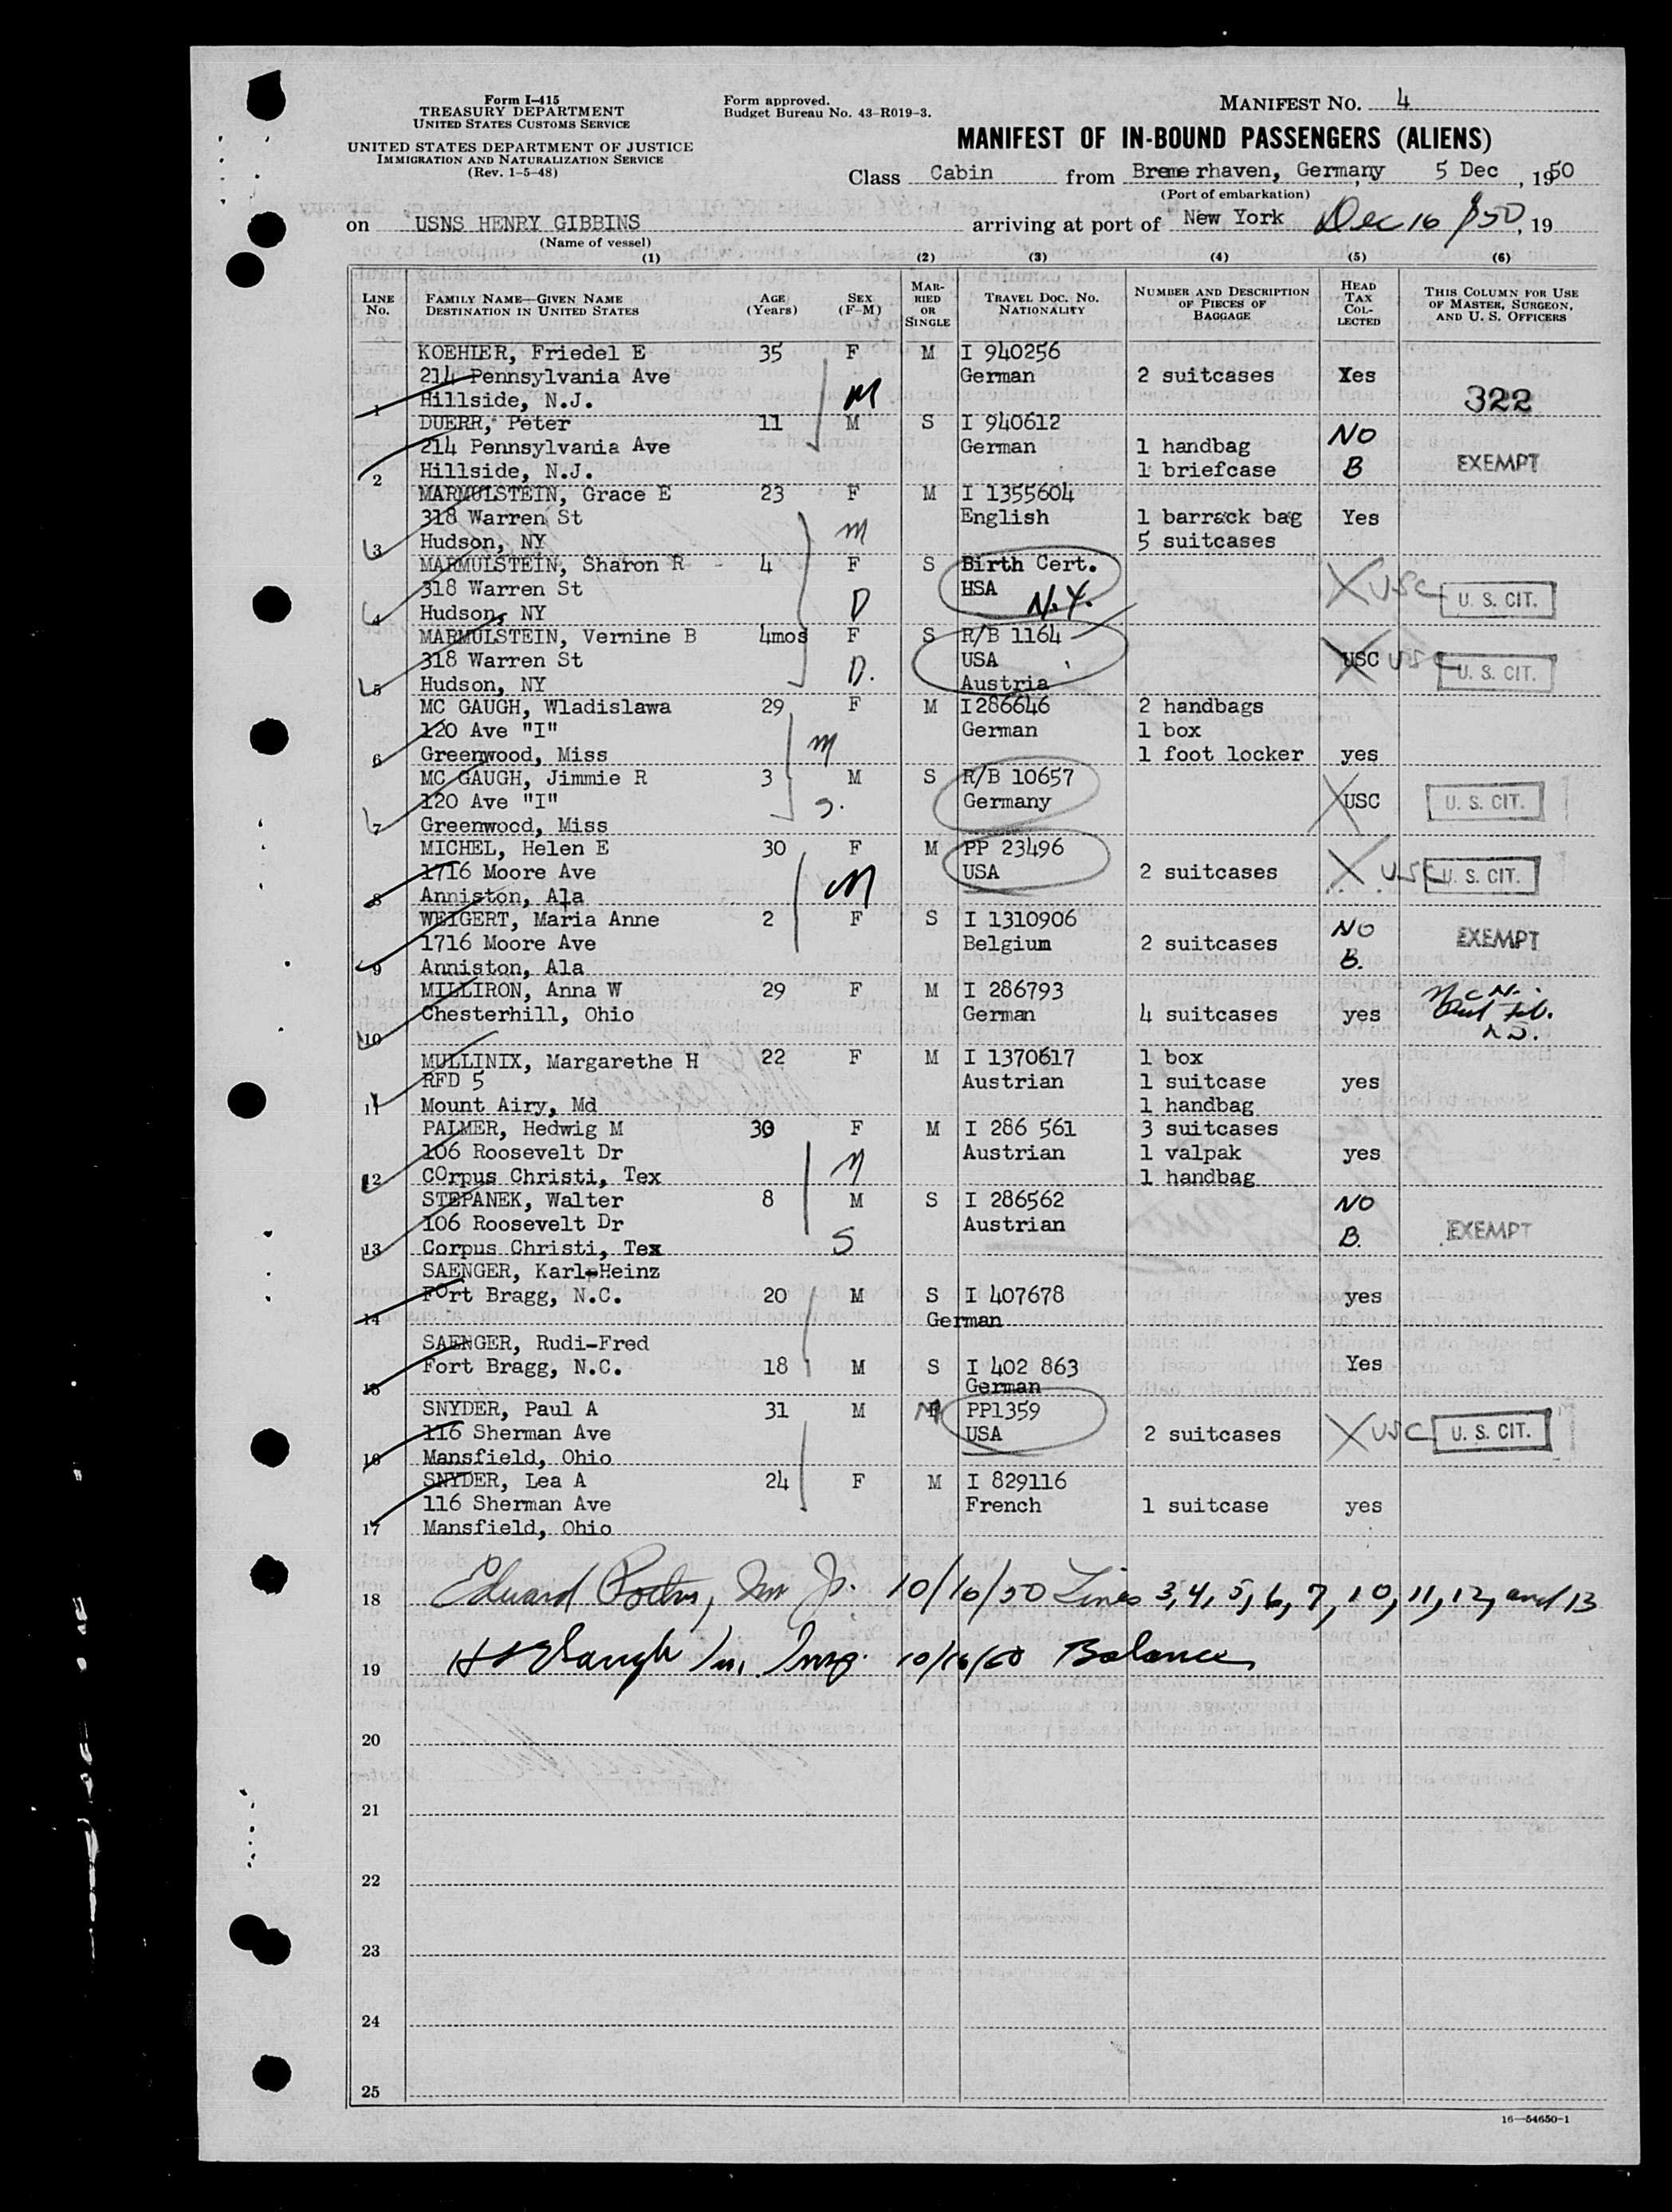 Form I-415
TREASURY DEPARTMENT
UNITED STATES CUSTOMS SERVICE
UNITED STATES DEPARTMENT OF JUSTICE
IMMIGRATION AND NATURALIZATION SERVICE
(Rev. 1-5-48)
Form approved.
Budget Bureau No. 43-R019-3.
MANIFEST NO. 4
MANIFEST OF IN-BOUND PASSENGERS (ALIENS)
Class Cabin from Bremerhaven, Germany 5 Dec, 1950
(Port of embarkation)
on USNS HENRY GIBBINS arriving at port of New York Dec 16 1950, 19
(Name of vessel)
(1) (2) (3) (4) (5) (6)
LINE No. FAMILY NAME—GIVEN NAME DESTINATION IN UNITED STATES AGE (Years) SEX (F-M) MARRIED OR SINGLE TRAVEL DOC. NO. NATIONALITY NUMBER AND DESCRIPTION OF PIECES OF BAGGAGE HEAD TAX COLLECTED THIS COLUMN FOR USE OF MASTER, SURGEON, AND U. S. OFFICERS
KOEHIER, Friedel E 35 F M I 940256
214 Pennsylvania Ave German 2 suitcases Yes
1 Hillside, N.J. M 322
DUERR, Peter 11 M S I 940612
214 Pennsylvania Ave German 1 handbag NO
2 Hillside, N.J. 1 briefcase B EXEMPT
MARMULSTEIN, Grace E 23 F M I 1355604
318 Warren St M English 1 barrack bag Yes
3 Hudson, NY 5 suitcases
MARMULSTEIN, Sharon R - 4 F S Birth Cert.
318 Warren St HSA X USC U. S. CIT.
4 Hudson, NY D N.Y.
MARMULSTEIN, Vernine B 4mos F S R/B 1164
318 Warren St USA USC USC U. S. CIT.
5 Hudson, NY D. Austria
MC GAUGH, Wladislawa 29 F M I286646 2 handbags
120 Ave "I" M German 1 box
6 Greenwood, Miss 1 foot locker yes
MC GAUGH, Jimmie R 3 M S R/B 10657
120 Ave "I" S. Germany USC U. S. CIT.
7 Greenwood, Miss
MICHEL, Helen E 30 F M PP 23496
1716 Moore Ave M USA 2 suitcases X USC U. S. CIT.
8 Anniston, Ala
WEIGERT, Maria Anne 2 F S I 1310906 NO
1716 Moore Ave Belgium 2 suitcases EXEMPT
9 Anniston, Ala B.
MILLIRON, Anna W 29 F M I 286793
Chesterhill, Ohio German 4 suitcases yes
10
MULLINIX, Margarethe H 22 F M I 1370617 1 box
RFD 5 Austrian 1 suitcase yes
11 Mount Airy, Md 1 handbag
PALMER, Hedwig M 30 F M I 286 561 3 suitcases
106 Roosevelt Dr M Austrian 1 valpak yes
12 COrpus Christi, Tex 1 handbag
STEPANEK, Walter 8 M S I 286562 NO
106 Roosevelt Dr Austrian EXEMPT
13 Corpus Christi, Tex S B.
SAENGER, Karl-Heinz
FOrt Bragg, N.C. 20 M S I 407678 yes
14 German
SAENGER, Rudi-Fred
Fort Bragg, N.C. 18 M S I 402 863 Yes
15 German
SNYDER, Paul A 31 M M PP1359
116 Sherman Ave USA 2 suitcases X USC U. S. CIT.
16 Mansfield, Ohio
SNYDER, Lea A 24 F M I 829116
116 Sherman Ave French 1 suitcase yes
17 Mansfield, Ohio
18 Edward 10/16/50 Lines 3, 4, 5, 6, 7, 10, 11, 12, and 13
19 Balance
20
21
22
23
24
25
16—54650-1